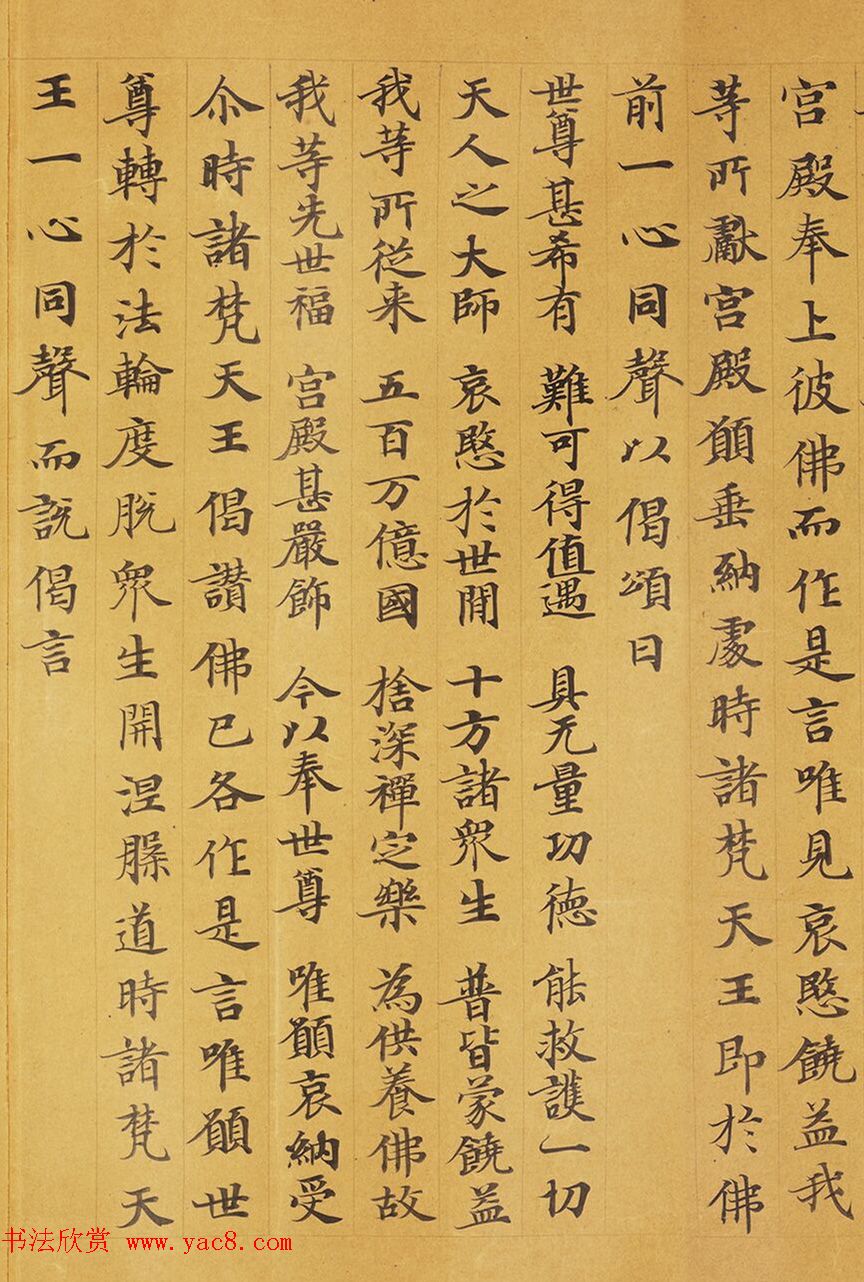 宫殿奉上彼佛而作是言唯見哀愍饒益我
等所獻宫殿願垂納處時諸梵天王即於佛
前一心同聲以偈頌曰
世尊甚希有 難可得值遇 具无量功德 能救護一切
天人之大師 哀愍於世間 十方諸衆生 普皆蒙饒益
我等所從来 五百万億國 捨深禪定樂 為供養佛故
我等先世福 宫殿甚嚴飾 今以奉世尊 唯願哀納受
尒時諸梵天王偈讃佛已各作是言唯願世
尊轉於法輪度脱衆生開涅槃道時諸梵天
王一心同聲而説偈言
书法欣赏 www.yac8.com